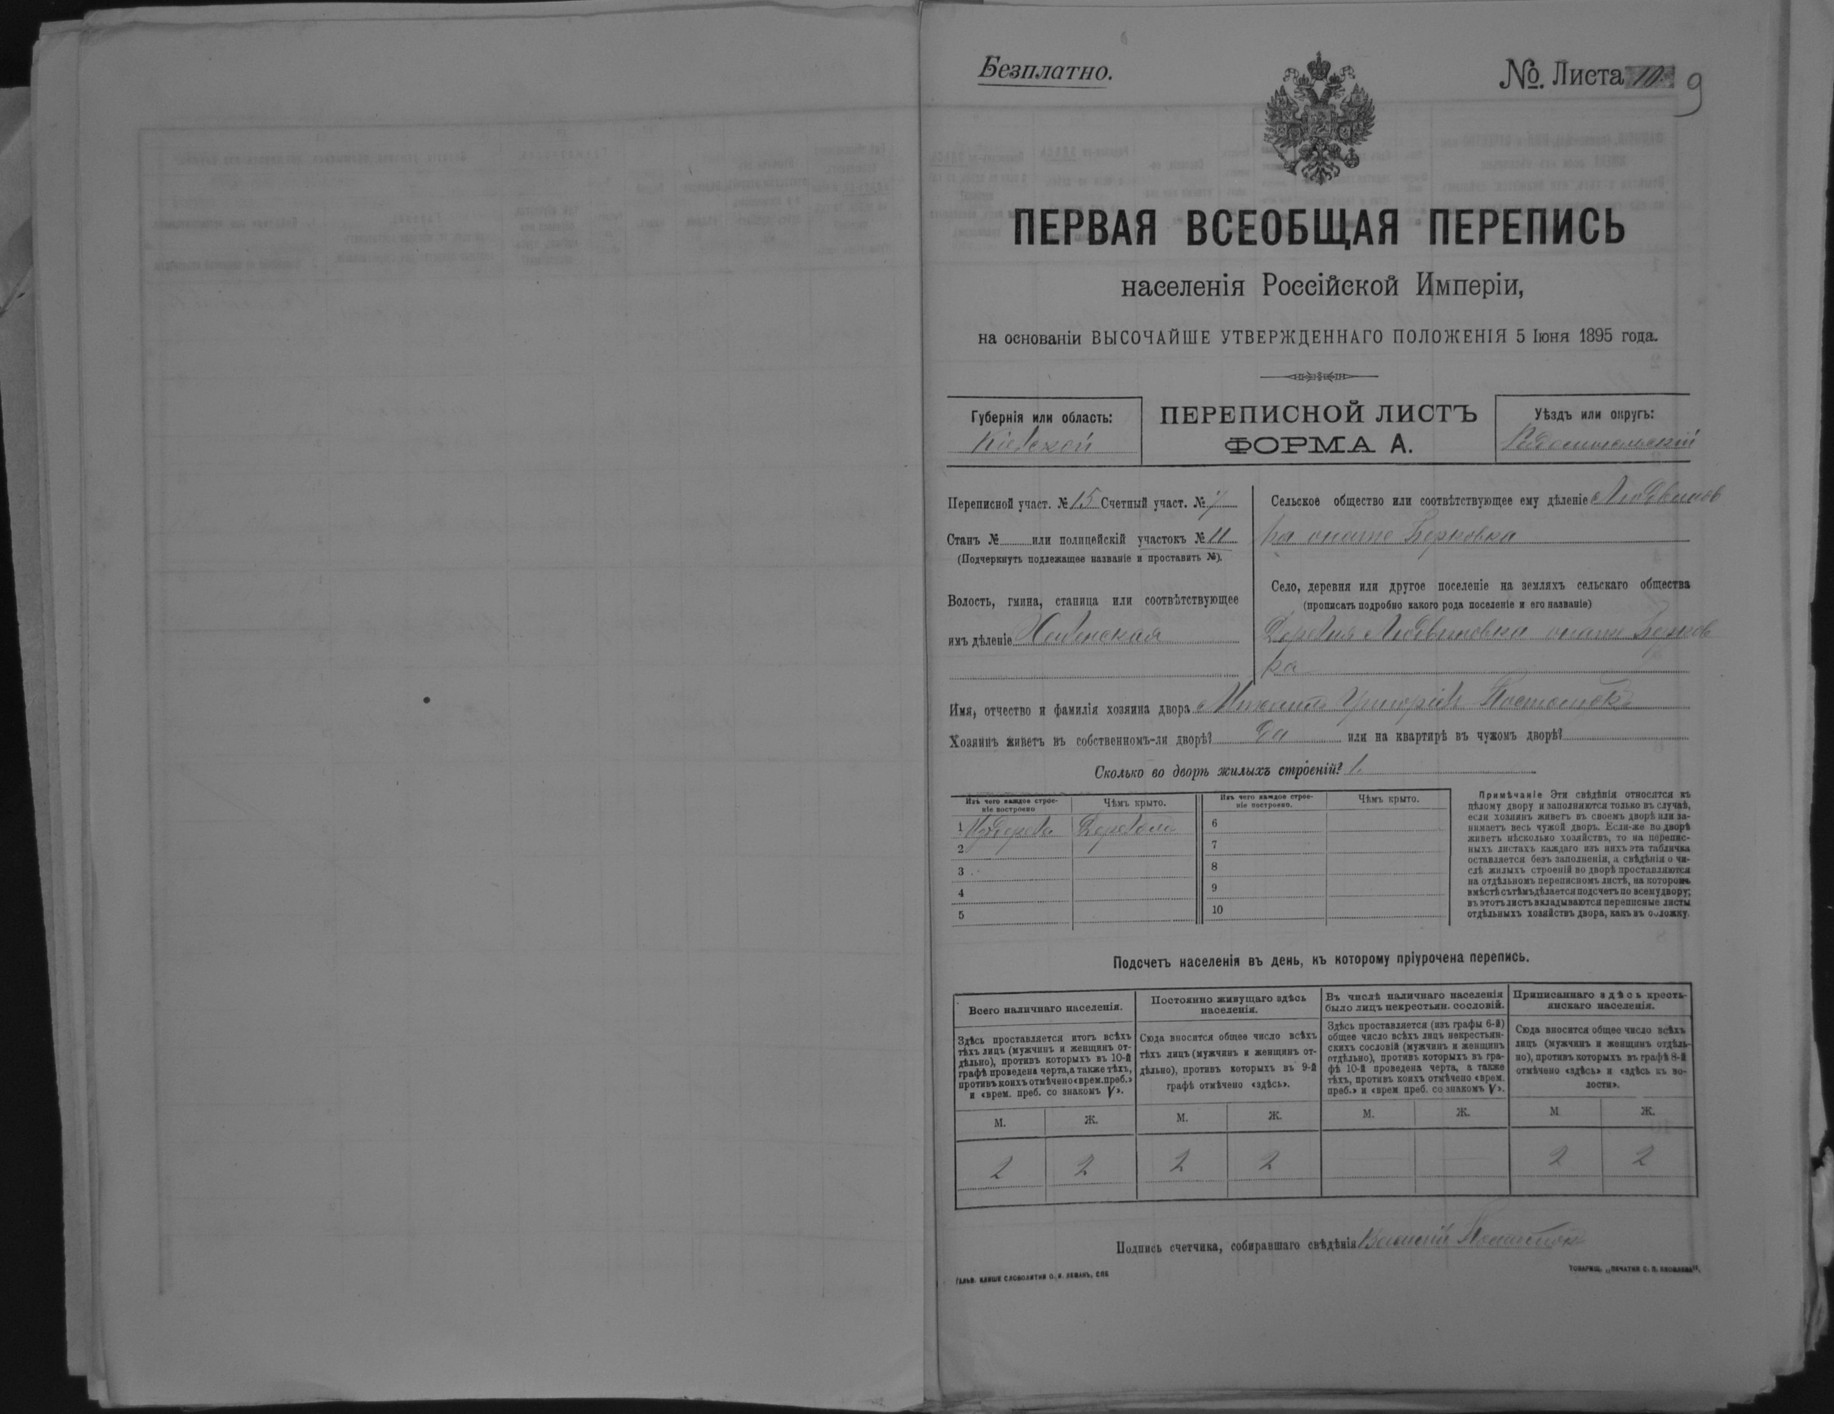 Безплатно.
№. Листа 10 9
ПЕРВАЯ ВСЕОБЩАЯ ПЕРЕПИСЬ
населенія Россійской Имперіи,
на основаніи ВЫСОЧАЙШЕ УТВЕРЖДЕННАГО ПОЛОЖЕНІЯ 5 Іюня 1895 года.
Губернія или область:
Кіевской
ПЕРЕПИСНОЙ ЛИСТЪ
ФОРМА А.
Уѣздъ или округъ:
Радомысльскій
Переписной участ. № 15 Счетный участ. № 7
Станъ № или полицейскій участокъ № 11
(Подчеркнуть подлежащее названіе и проставить №).
Волость, гмина, станица или соотвѣтствующее
имъ дѣленіе
Сельское общество или соотвѣтствующее ему дѣленіе
Село, деревня или другое поселеніе на земляхъ сельскаго общества
(прописать подробно какого рода поселеніе и его названіе)
Деревня
ка
Имя, отчество и фамилія хозяина двора
Хозяинъ живетъ въ собственномъ-ли дворѣ? Да или на квартирѣ въ чужомъ дворѣ?
Сколько во дворѣ жилыхъ строеній? 1.
Изъ чего каждое строе-
ніе построено
Чѣмъ крыто.
1 Деревом
2
3
4
5
Изъ чего каждое строе-
ніе построено.
Чѣмъ крыто.
6
7
8
9
10
Примѣчаніе Эти свѣдѣнія относятся къ
цѣлому двору и заполняются только въ случаѣ,
если хозяинъ живетъ въ своемъ дворѣ или за-
нимаетъ весь чужой дворъ. Если-же во дворѣ
живетъ нѣсколько хозяйствъ, то на перепис-
ныхъ листахъ каждаго изъ нихъ эта табличка
оставляется безъ заполненія, а свѣдѣнія о чи-
слѣ жилыхъ строеній во дворѣ проставляются
на отдѣльномъ переписномъ листѣ, на которомъ
вмѣстѣ съ тѣмъ дѣлается подсчетъ по всему двору;
въ этотъ листъ вкладываются переписные листы
отдѣльныхъ хозяйствъ двора, какъ въ обложку.
Подсчетъ населенія въ день, къ которому пріурочена перепись.
Всего наличнаго населенія.
Здѣсь проставляется итогъ всѣхъ
тѣхъ лицъ (мужчинъ и женщинъ от-
дѣльно), противъ которыхъ въ 10-й
графѣ проведена черта, а также тѣхъ,
противъ коихъ отмѣчено «врем. преб.»
и «врем. преб. со знакомъ V».
М. Ж.
2 2
Постоянно живущаго здѣсь
населенія.
Сюда вносится общее число всѣхъ
тѣхъ лицъ (мужчинъ и женщинъ от-
дѣльно), противъ которыхъ въ 9-й
графѣ отмѣчено «здѣсь».
М. Ж.
2 2
Въ числѣ наличнаго населенія
было лицъ некрестьян. сословій.
Здѣсь проставляется (изъ графы 6-й)
общее число всѣхъ лицъ некрестьян-
скихъ сословій (мужчинъ и женщинъ
отдѣльно), противъ которыхъ въ гра-
фѣ 10-й проведена черта, а также
тѣхъ, противъ коихъ отмѣчено «врем.
преб.» и «врем. преб. со знакомъ V».
М. Ж.
Приписаннаго здѣсь кресть-
янскаго населенія.
Сюда вносится общее число всѣхъ
лицъ (мужчинъ и женщинъ отдѣль-
но), противъ которыхъ въ графѣ 8-й
отмѣчено «здѣсь» и «здѣсь въ во-
лости».
М. Ж.
2 2
Подпись счетчика, собиравшаго свѣдѣнія